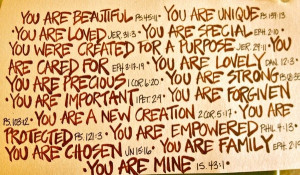 YOU ARE BEAUTIFUL PS.45:11 • YOU ARE UNIQUE PS.139:13
• YOU ARE LOVED JER. 31:3 • YOU ARE SPECIAL EPH. 2:10
YOU WERE CREATED FOR A PURPOSE JER. 29:11 • YOU
ARE CARED FOR EPH. 3:17-19 • YOU ARE LOVELY DAN. 12:3
• YOU ARE PRECIOUS 1 COR. 6:20 • YOU ARE STRONG
• YOU ARE IMPORTANT 1 PET. 2:9 • YOU ARE FORGIVEN
PS. 103:12 • YOU ARE A NEW CREATION 2 COR. 5:17 • YOU ARE
PROTECTED PS. 121:3 • YOU ARE EMPOWERED PHIL. 4:13
YOU ARE CHOSEN JN 15:16 • YOU ARE FAMILY EPH. 2:19
• YOU ARE MINE IS. 43:1 •